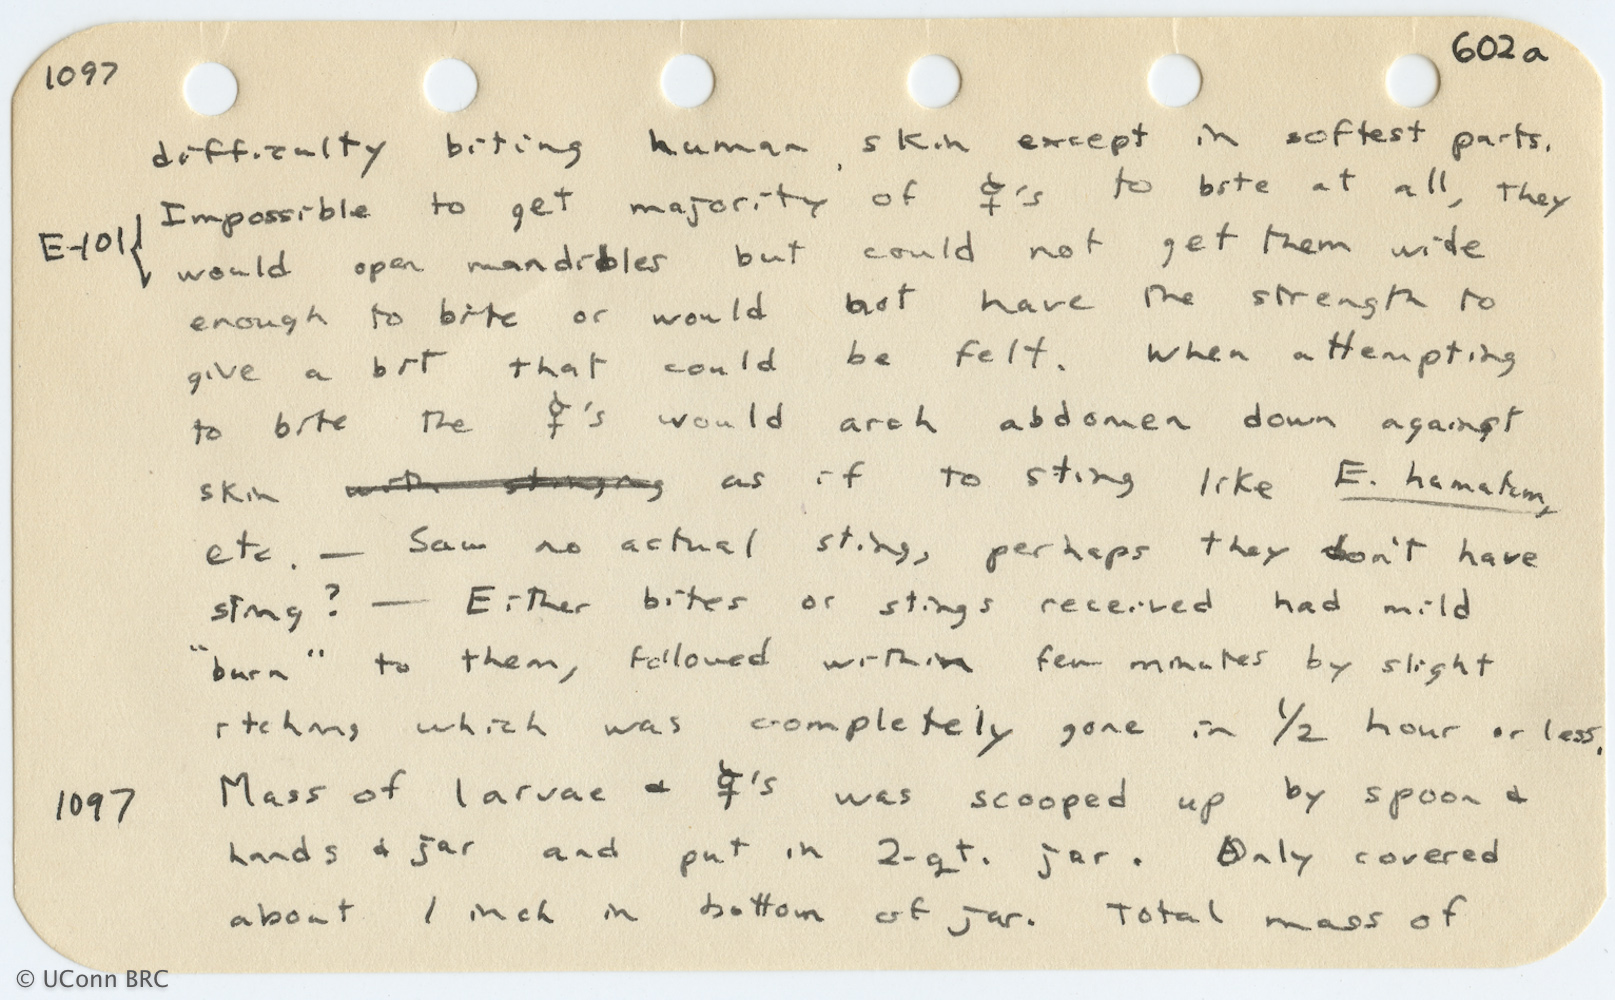 1097
602a
difficulty biting human skin except in softest parts.
Impossible to get majority of ☿'s to bite at all, they
E-101{
would open mandibles but could not get them wide
enough to bite or would not have the strength to
give a bit that could be felt. When attempting
to bite the ☿'s would arch abdomen down against
skin with stinging as if to sting like E. hamatum,
etc. — Saw no actual sting, perhaps they don't have
sting? — Either bites or stings received had mild
"burn" to them, followed within few minutes by slight
itching which was completely gone in 1/2 hour or less.
1097 Mass of larvae & ☿'s was scooped up by spoon &
hands & jar and put in 2-qt. jar. Only covered
about 1 inch in bottom of jar. Total mass of
© UConn BRC